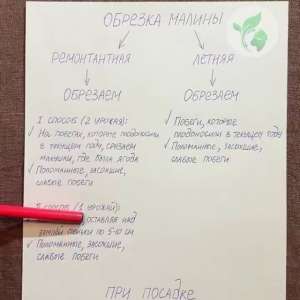 ОБРЕЗКА МАЛИНЫ
РЕМОНТАНТНАЯ
ОБРЕЗАЕМ
I СПОСОБ (2 УРОЖАЯ):
✓ НА ПОБЕГАХ, КОТОРЫЕ ПЛОДОНОСИЛИ
В ТЕКУЩЕМ ГОДУ, СРЕЗАЕМ
МАКУШКИ, ГДЕ БЫЛА ЯГОДА
✓ ПОЛОМАННЫЕ, ЗАСОХШИЕ,
СЛАБЫЕ ПОБЕГИ
(1 УРОЖАЙ):
ОСТАВЛЯЯ НАД
ЗЕМЛЁЙ ПЕНЬКИ ПО 5-10 СМ
✓ ПОЛОМАННЫЕ, ЗАСОХШИЕ,
СЛАБЫЕ ПОБЕГИ
ЛЕТНЯЯ
ОБРЕЗАЕМ
✓ ПОБЕГИ, КОТОРЫЕ
ПЛОДОНОСИЛИ В ТЕКУЩЕМ ГОДУ
✓ ПОЛОМАННЫЕ, ЗАСОХШИЕ,
СЛАБЫЕ ПОБЕГИ
ПРИ ПОСАДКЕ